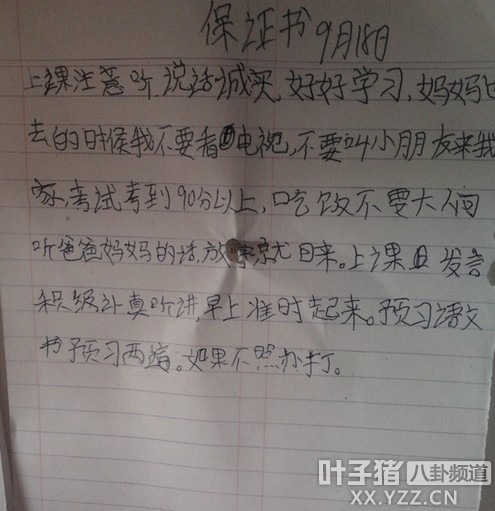 保证书 9月18日
上课注意听,说话诚买,好好学习,妈妈出
去的时候我不要看电视,不要叫小朋友来我
家,考试考到90分以上,吃饭不要大人问
听爸爸妈妈的话,放学就回来。上课 发言
积级认真听讲,早上准时起来。预习语文
书预习两编。如果不照办打。
叶子猪 八卦频道
XX.YZZ.CN